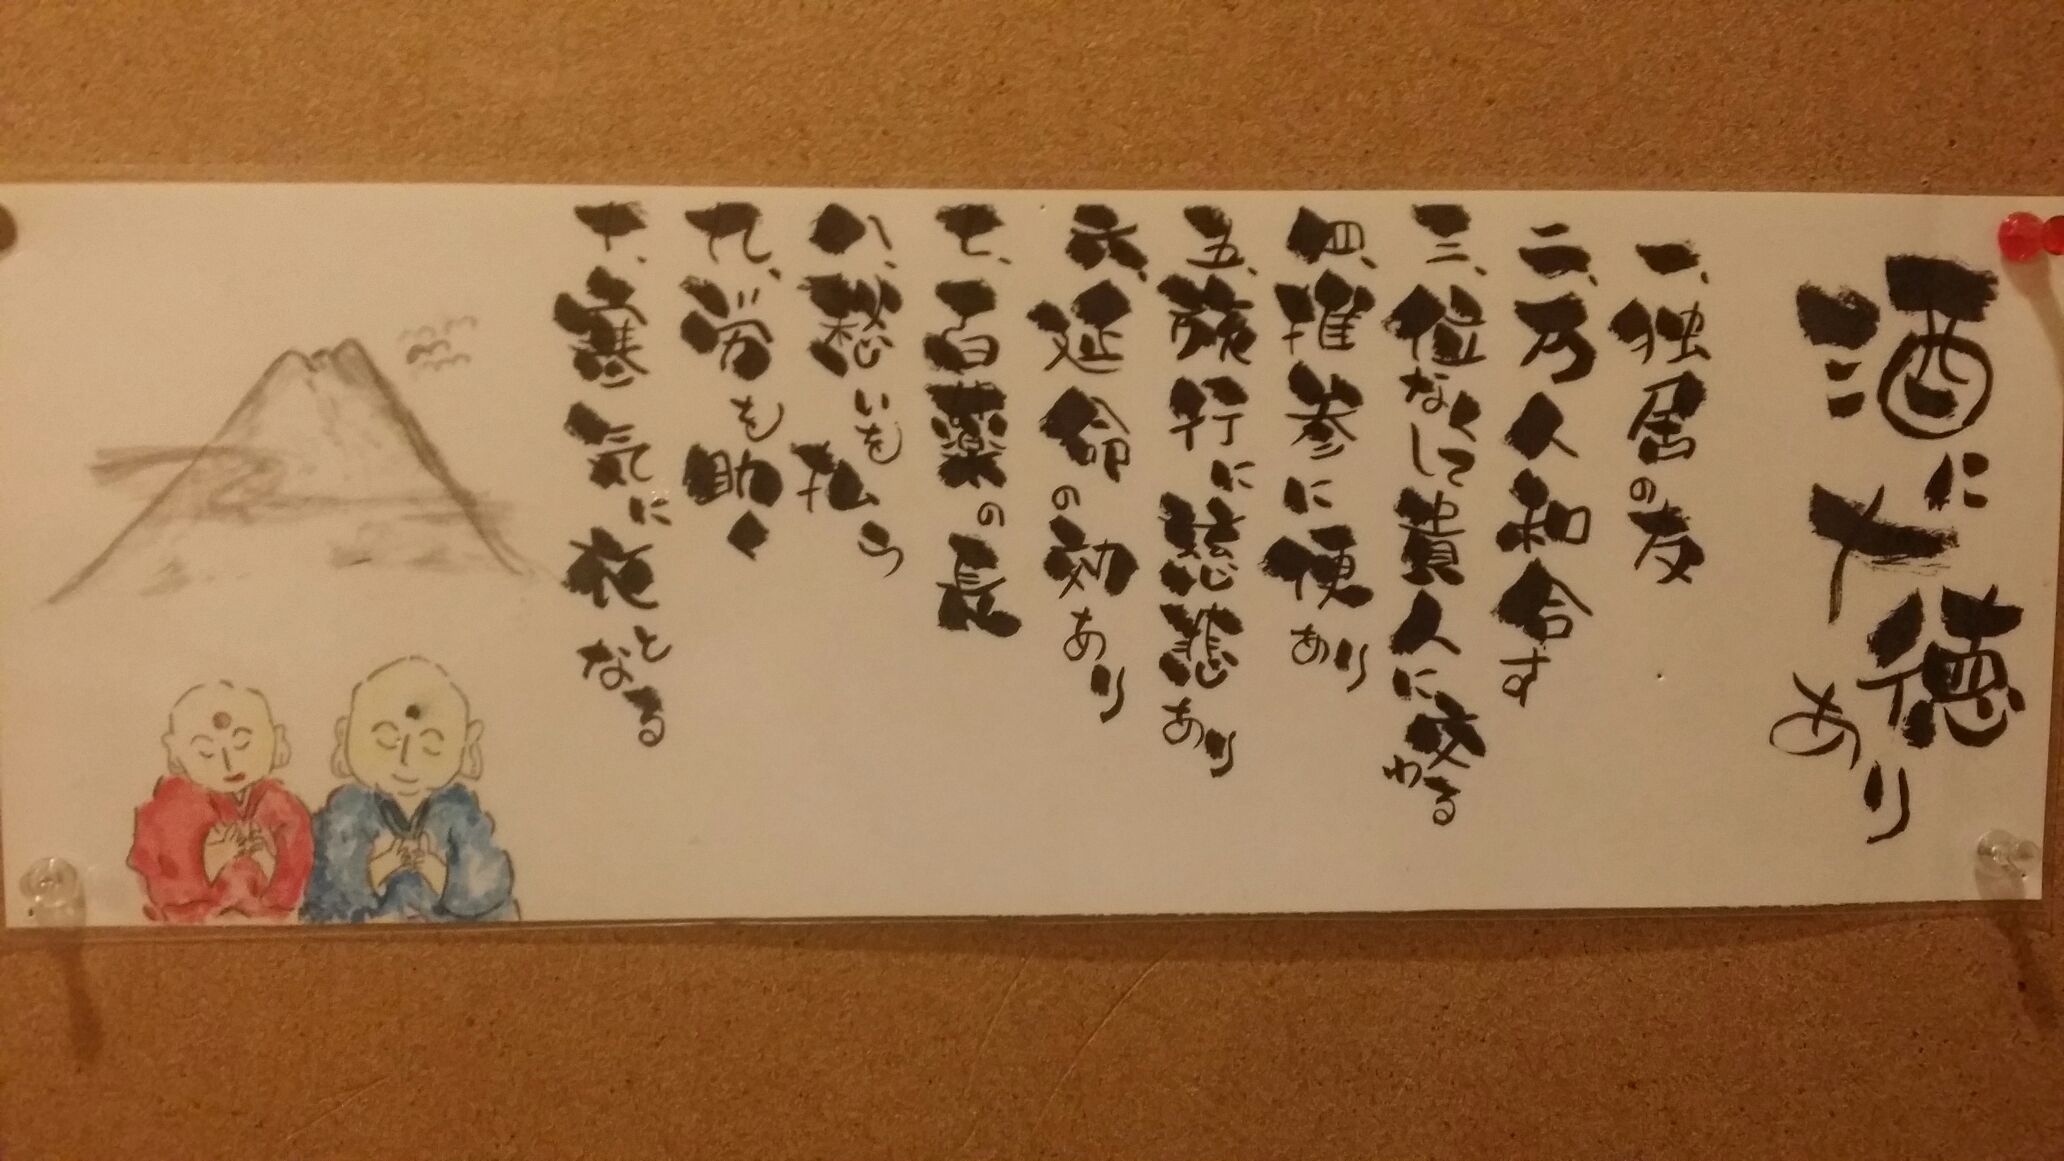 酒に十徳あり
一、独居の友
二、万人和合す
三、位なくして貴人に交わる
四、推参に便あり
五、旅行に慈悲あり
六、延命の効あり
七、百薬の長
八、愁いを払う
九、労を助く
十、寒気に衣となる